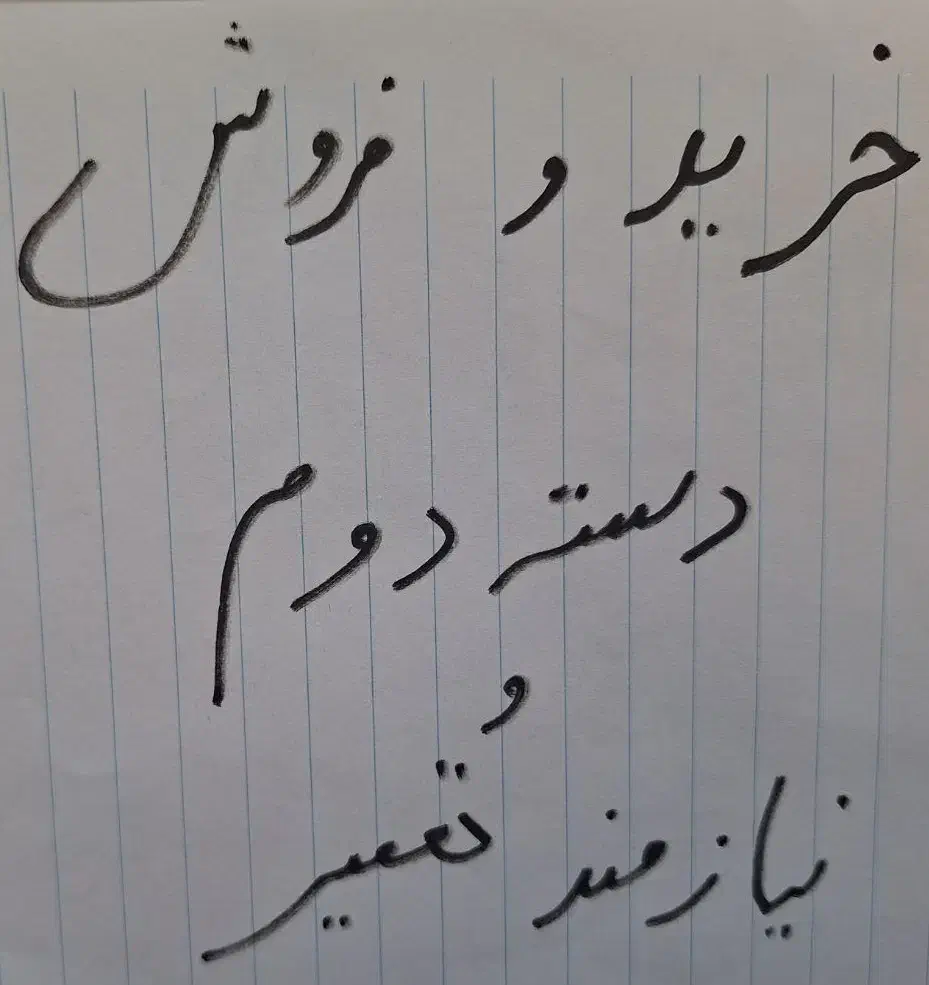 خرید و فروش
دسته دوم
و
نیازمند تعمیر